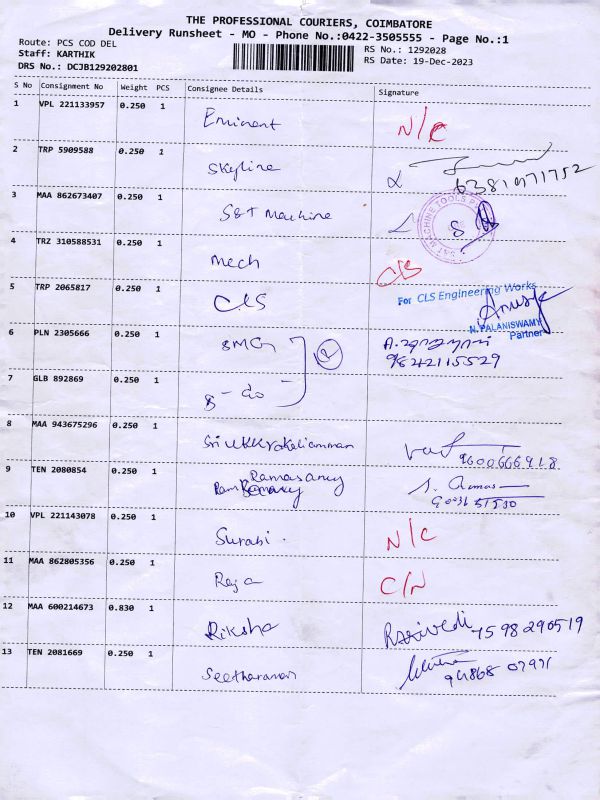 THE PROFESSIONAL COURIERS, COIMBATORE
Delivery Runsheet - MO - Phone No.:0422-3505555 - Page No.:1
Route: PCS COD DEL
Staff: KARTHIK
DRS No.: DCJB129202801
RS No.: 1292028
RS Date: 19-Dec-2023
S No Consignment No Weight PCS Consignee Details Signature
1 VPL 221133957 0.250 1 Eminent N/C
2 TRP 5909588 0.250 1 Skyline
3 MAA 862673407 0.250 1 S&T Machine
4 TRZ 310588531 0.250 1 Mech
5 TRP 2065817 0.250 1 CLS
For CLS Engineering Works
N.PALANISWAMY
Partner
6 PLN 2305666 0.250 1 SMG 2
9842115529
7 GLB 892869 0.250 1 8 - do -
8 MAA 943675296 0.250 1
9600666918
9 TEN 2080854 0.250 1 Ramasamy
10 VPL 221143078 0.250 1 Surabi . N/C
11 MAA 862805356 0.250 1 Raja C/N
12 MAA 600214673 0.830 1 Riksha 7598290519
13 TEN 2081669 0.250 1 Seetharaman
94868 07971